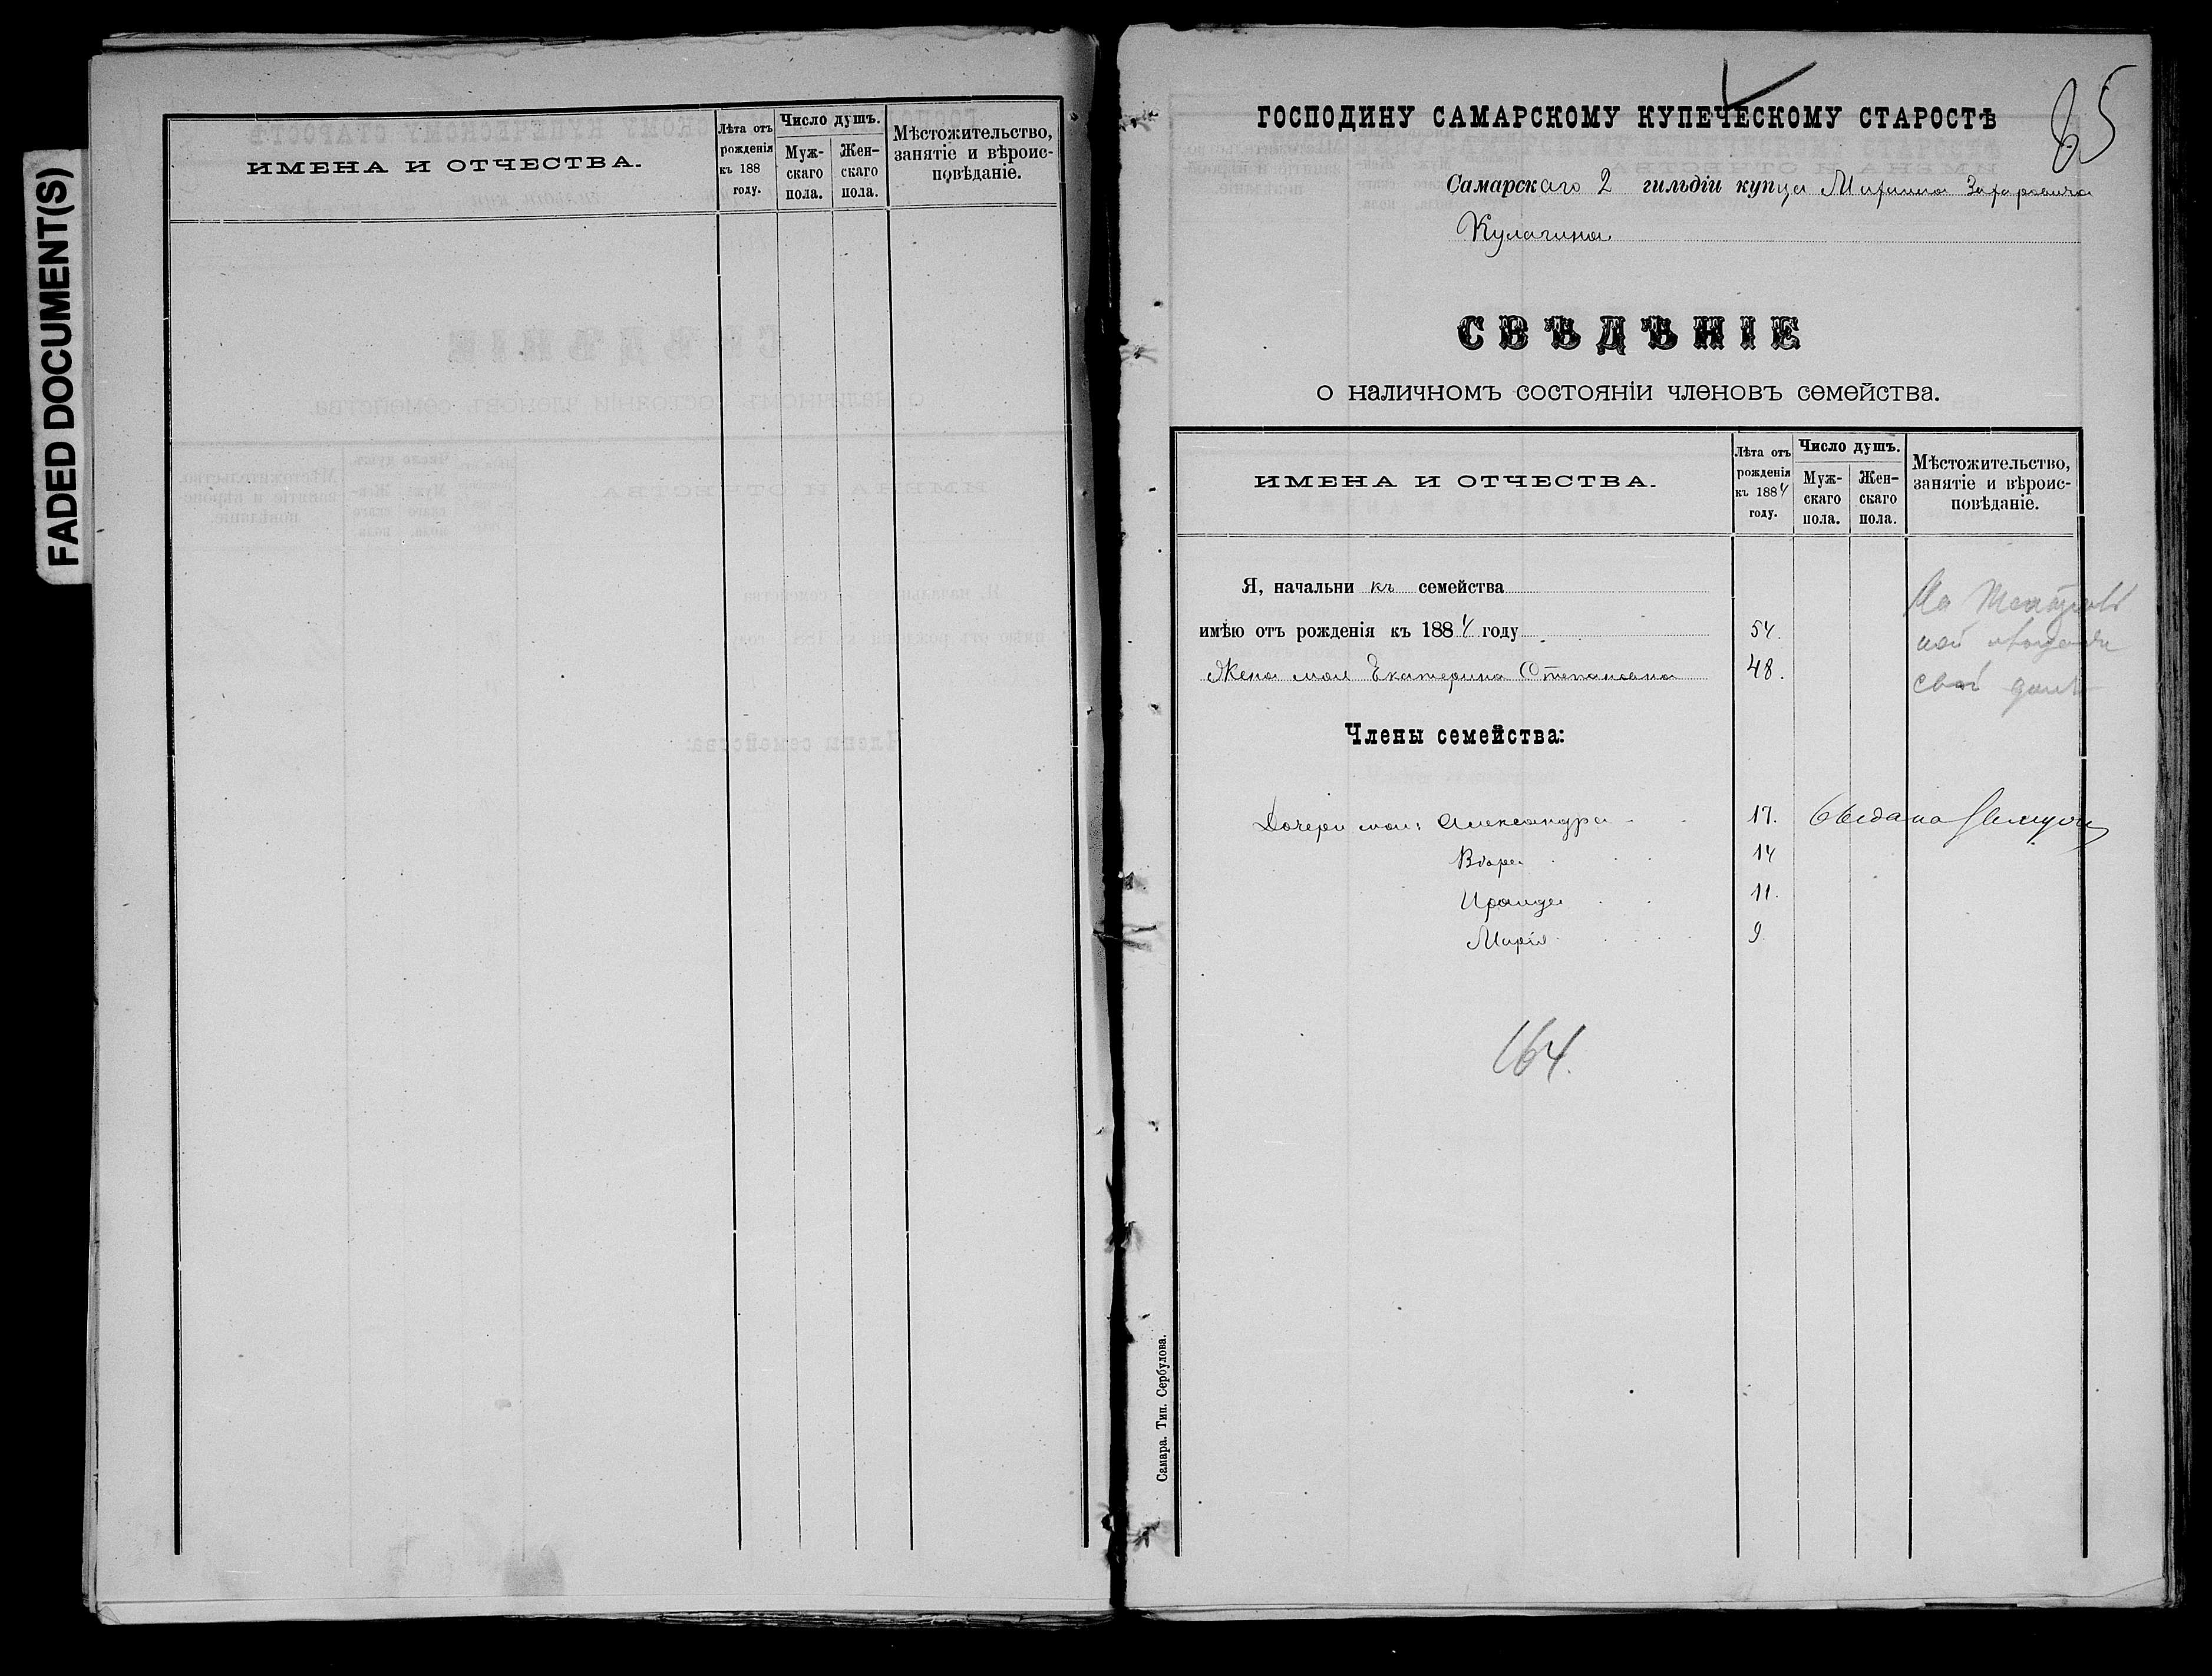 FADED DOCUMENT(S)
ИМЕНА И ОТЧЕСТВА.
Лѣта отъ рожденія къ 188 году.
Число душъ.
Мужскаго пола.
Женскаго пола.
Мѣстожительство, занятіе и вѣроисповѣданіе.
85
ГОСПОДИНУ САМАРСКОМУ КУПЕЧЕСКОМУ СТАРОСТѢ
Самарскаго 2 гильдіи купца Захаровича
Кулагина
СВѢДѢНІЕ
о наличномъ состояніи членовъ семейства.
ИМЕНА И ОТЧЕСТВА.
Лѣта отъ рожденія къ 1884 году.
Число душъ.
Мужскаго пола.
Женскаго пола.
Мѣстожительство, занятіе и вѣроисповѣданіе.
Я, начальникъ семейства
имѣю отъ рожденія къ 1884 году 54.
Жена моя Екатерина Степановна 48.
Члены семейства:
Дочери мои: Александра 17. выдана замужъ
Вѣра 14
Ираида 11.
Марія 9
164.
Самара. Тип. Сербулова.